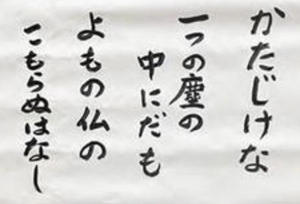 かたじけな
一つの塵の
中にだも
よもの仏の
こもらぬはなし